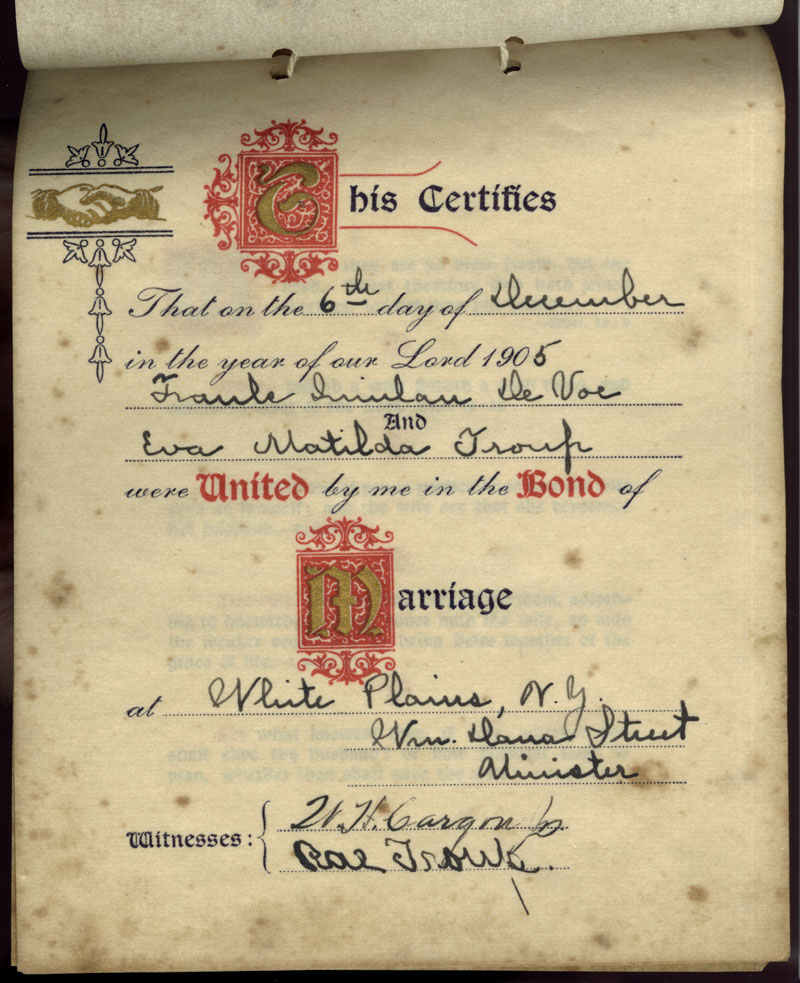 This Certifies
That on the 6th day of December
in the year of our Lord 1905
Frank De Voe
And
Eva Matilda Troup
were United by me in the Bond of
Marriage
at White Plains, N.Y.
Wm. Dana Street
Minister
Witnesses: W. H. Cargon Jr.
Rae